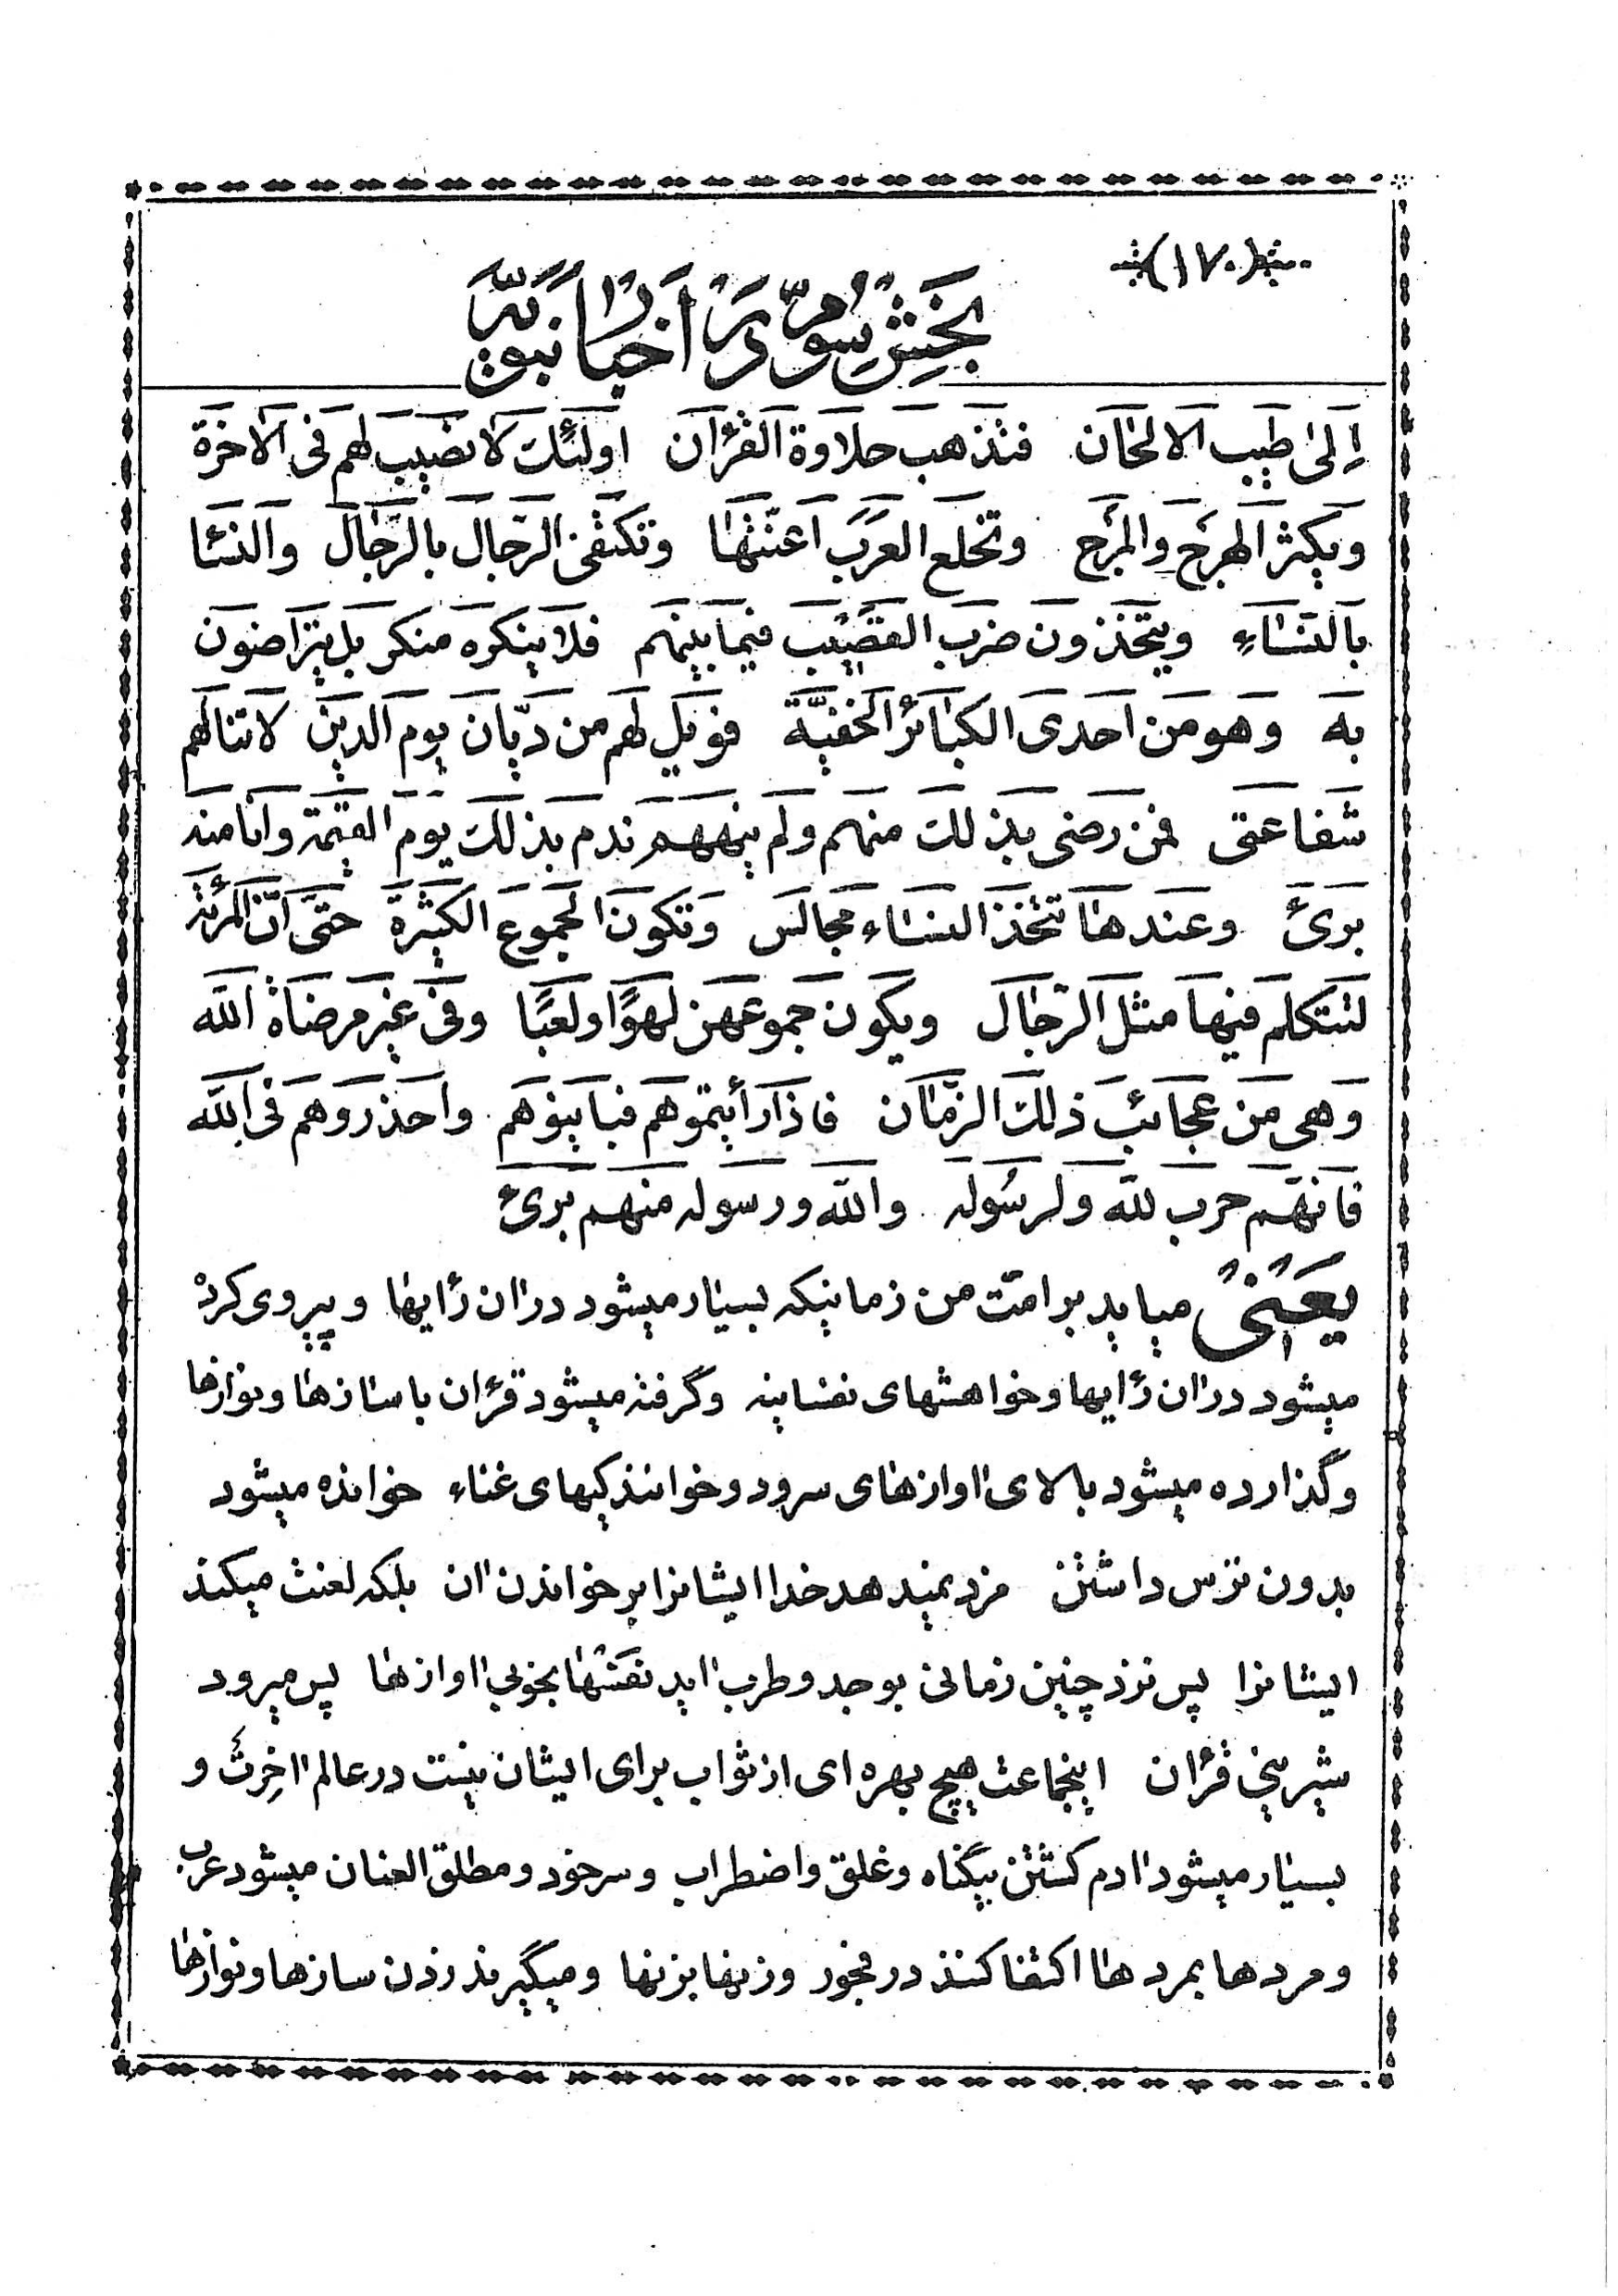 (۱۷۰)
بخش سوّم در اخبار نبویّه
اِلیٰ طیب الالحٰان فتذهب حلاوة القرٰان اولٓئک لا نصیب لهم فی الاخرة
ویکثر الهرج والمرج وتخلع العرب اعنّتهٰا وتکتفی الرّجال بالرّجٰال والنسٰا
بالنّسٰاءِ ویتّخذون ضرب القضیب فیما بینهم فلا ینکره منکر بل یتراضون
به وهو من احدی الکبٰائر الخفیّة فویل لهم من دیّان یوم الدین لا تنالهم
شفاعتی فمن رضی بذلک منهم ولم ینههم ندم بذلک یوم القیٰمة وانا منه
بریٔ وعندهٰا تتّخذ النسٰاء مجالس وتکون الجموع الکثیرة حتّی انّ المرئة
لتتکلم فیها مثل الرّجٰال ویکون جموعهن لهوًا ولعبًا وفی غیر مرضاة الله
وهی من عجائب ذلک الزمٰان فاذا رأیتموهم فباینوهم واحذروهم فی الله
فانهم حرب لله ولرسُوله والله ورسوله منهم بریٔ
یَعنی میاید بر امّت من زمانیکه بسیٰار میشود دران رٔایها و پیروی کرده
میشود دران رٔایها وخواهشهای نفسانیه وگرفته میشود قرٰان با سازهٰا ونوازها
وگذارده میشود بالای اوازهٰای سرود وخوانندکیهای غناء خوانده میشود
بدون ترس داشتن مزد نمیدهد خدا ایشانرا بر خواندن ان بلکه لعنت میکند
ایشانرا پس نزد چنین زمانی بوجد وطرب اید نفسهٰا بخوبی اوازهٰا پس میرود
شیرینی قرٰان اینجماعت هیچ بهره ای از ثواب برای ایشان نیست در عالم اخِرَت و
بسیٰار میشود ادم کشتن بیگناه وغلق واضطراب وسرخود ومطلق العنان میشود عرب
ومردها بمردهٰا اکتفا کنند در فجور وزنها بزنها ومیگیرند زدن سازها ونوازها